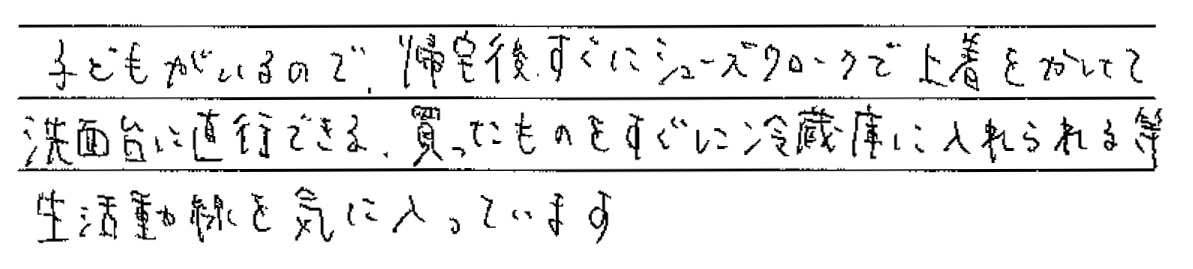 子どもがいるので、帰宅後、すぐにシューズクロークで上着をかけて
洗面台に直行できる、買ったものをすぐに冷蔵庫に入れられる等
生活動線を気に入っています